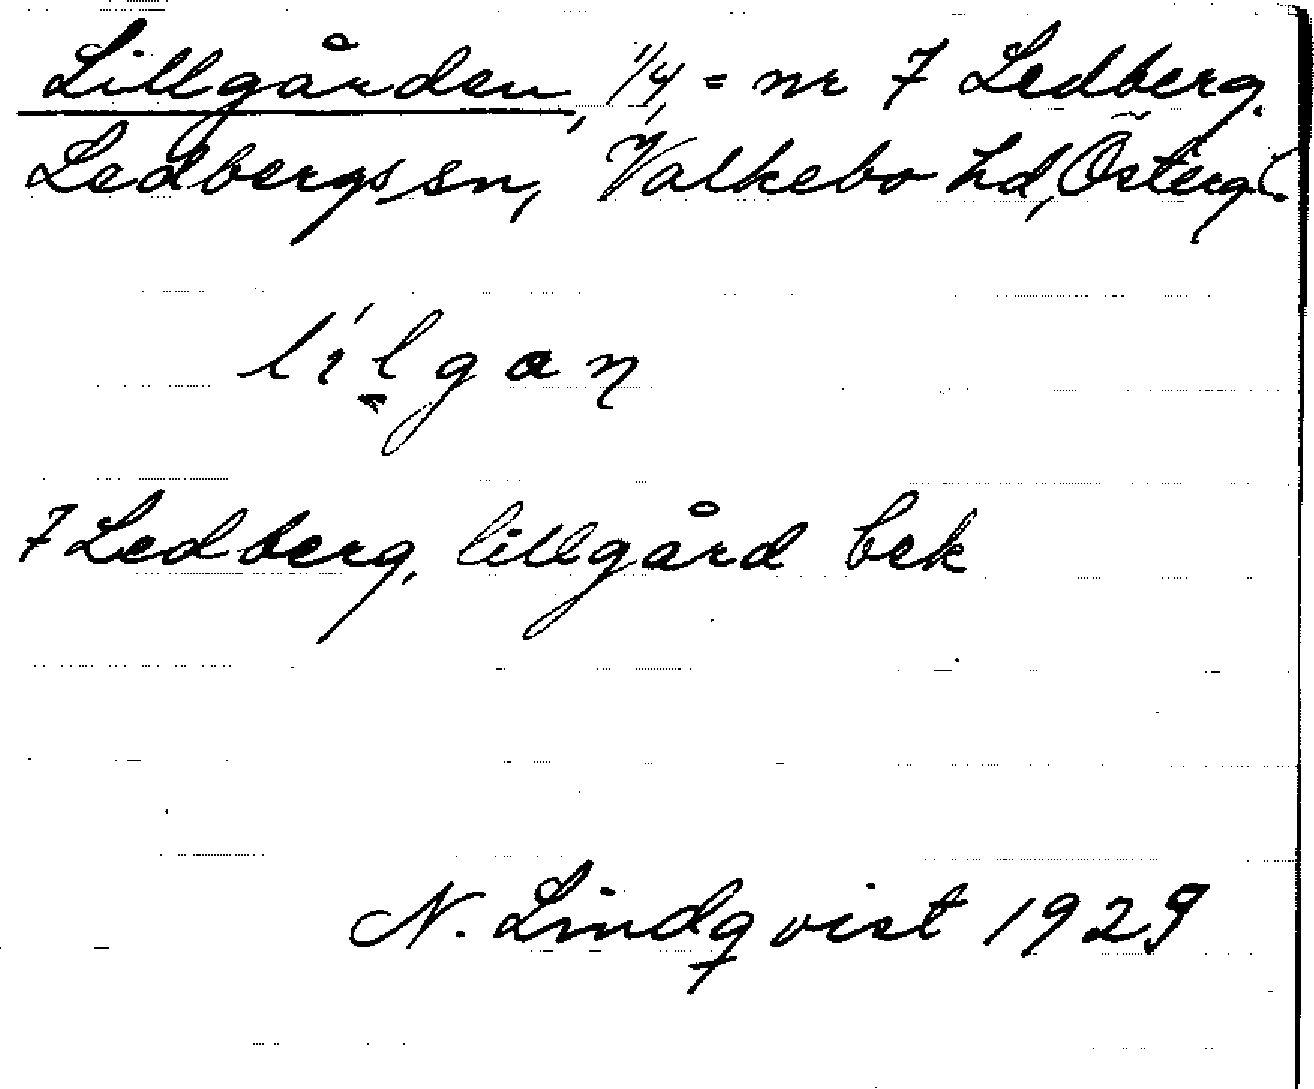 Lillgården, 1/4, = nr 7 Ledberg.
Ledbergs sn, Valkebo hd, Österg.
lílgan
7 Ledberg, lillgård bek
N. Lindqvist 1929